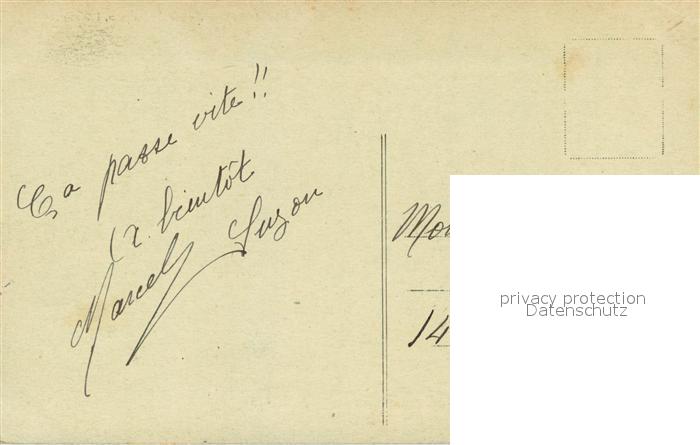 Ça passe vite!!
A bientôt
Marcel Suzon
Mo
14
privacy protection
Datenschutz